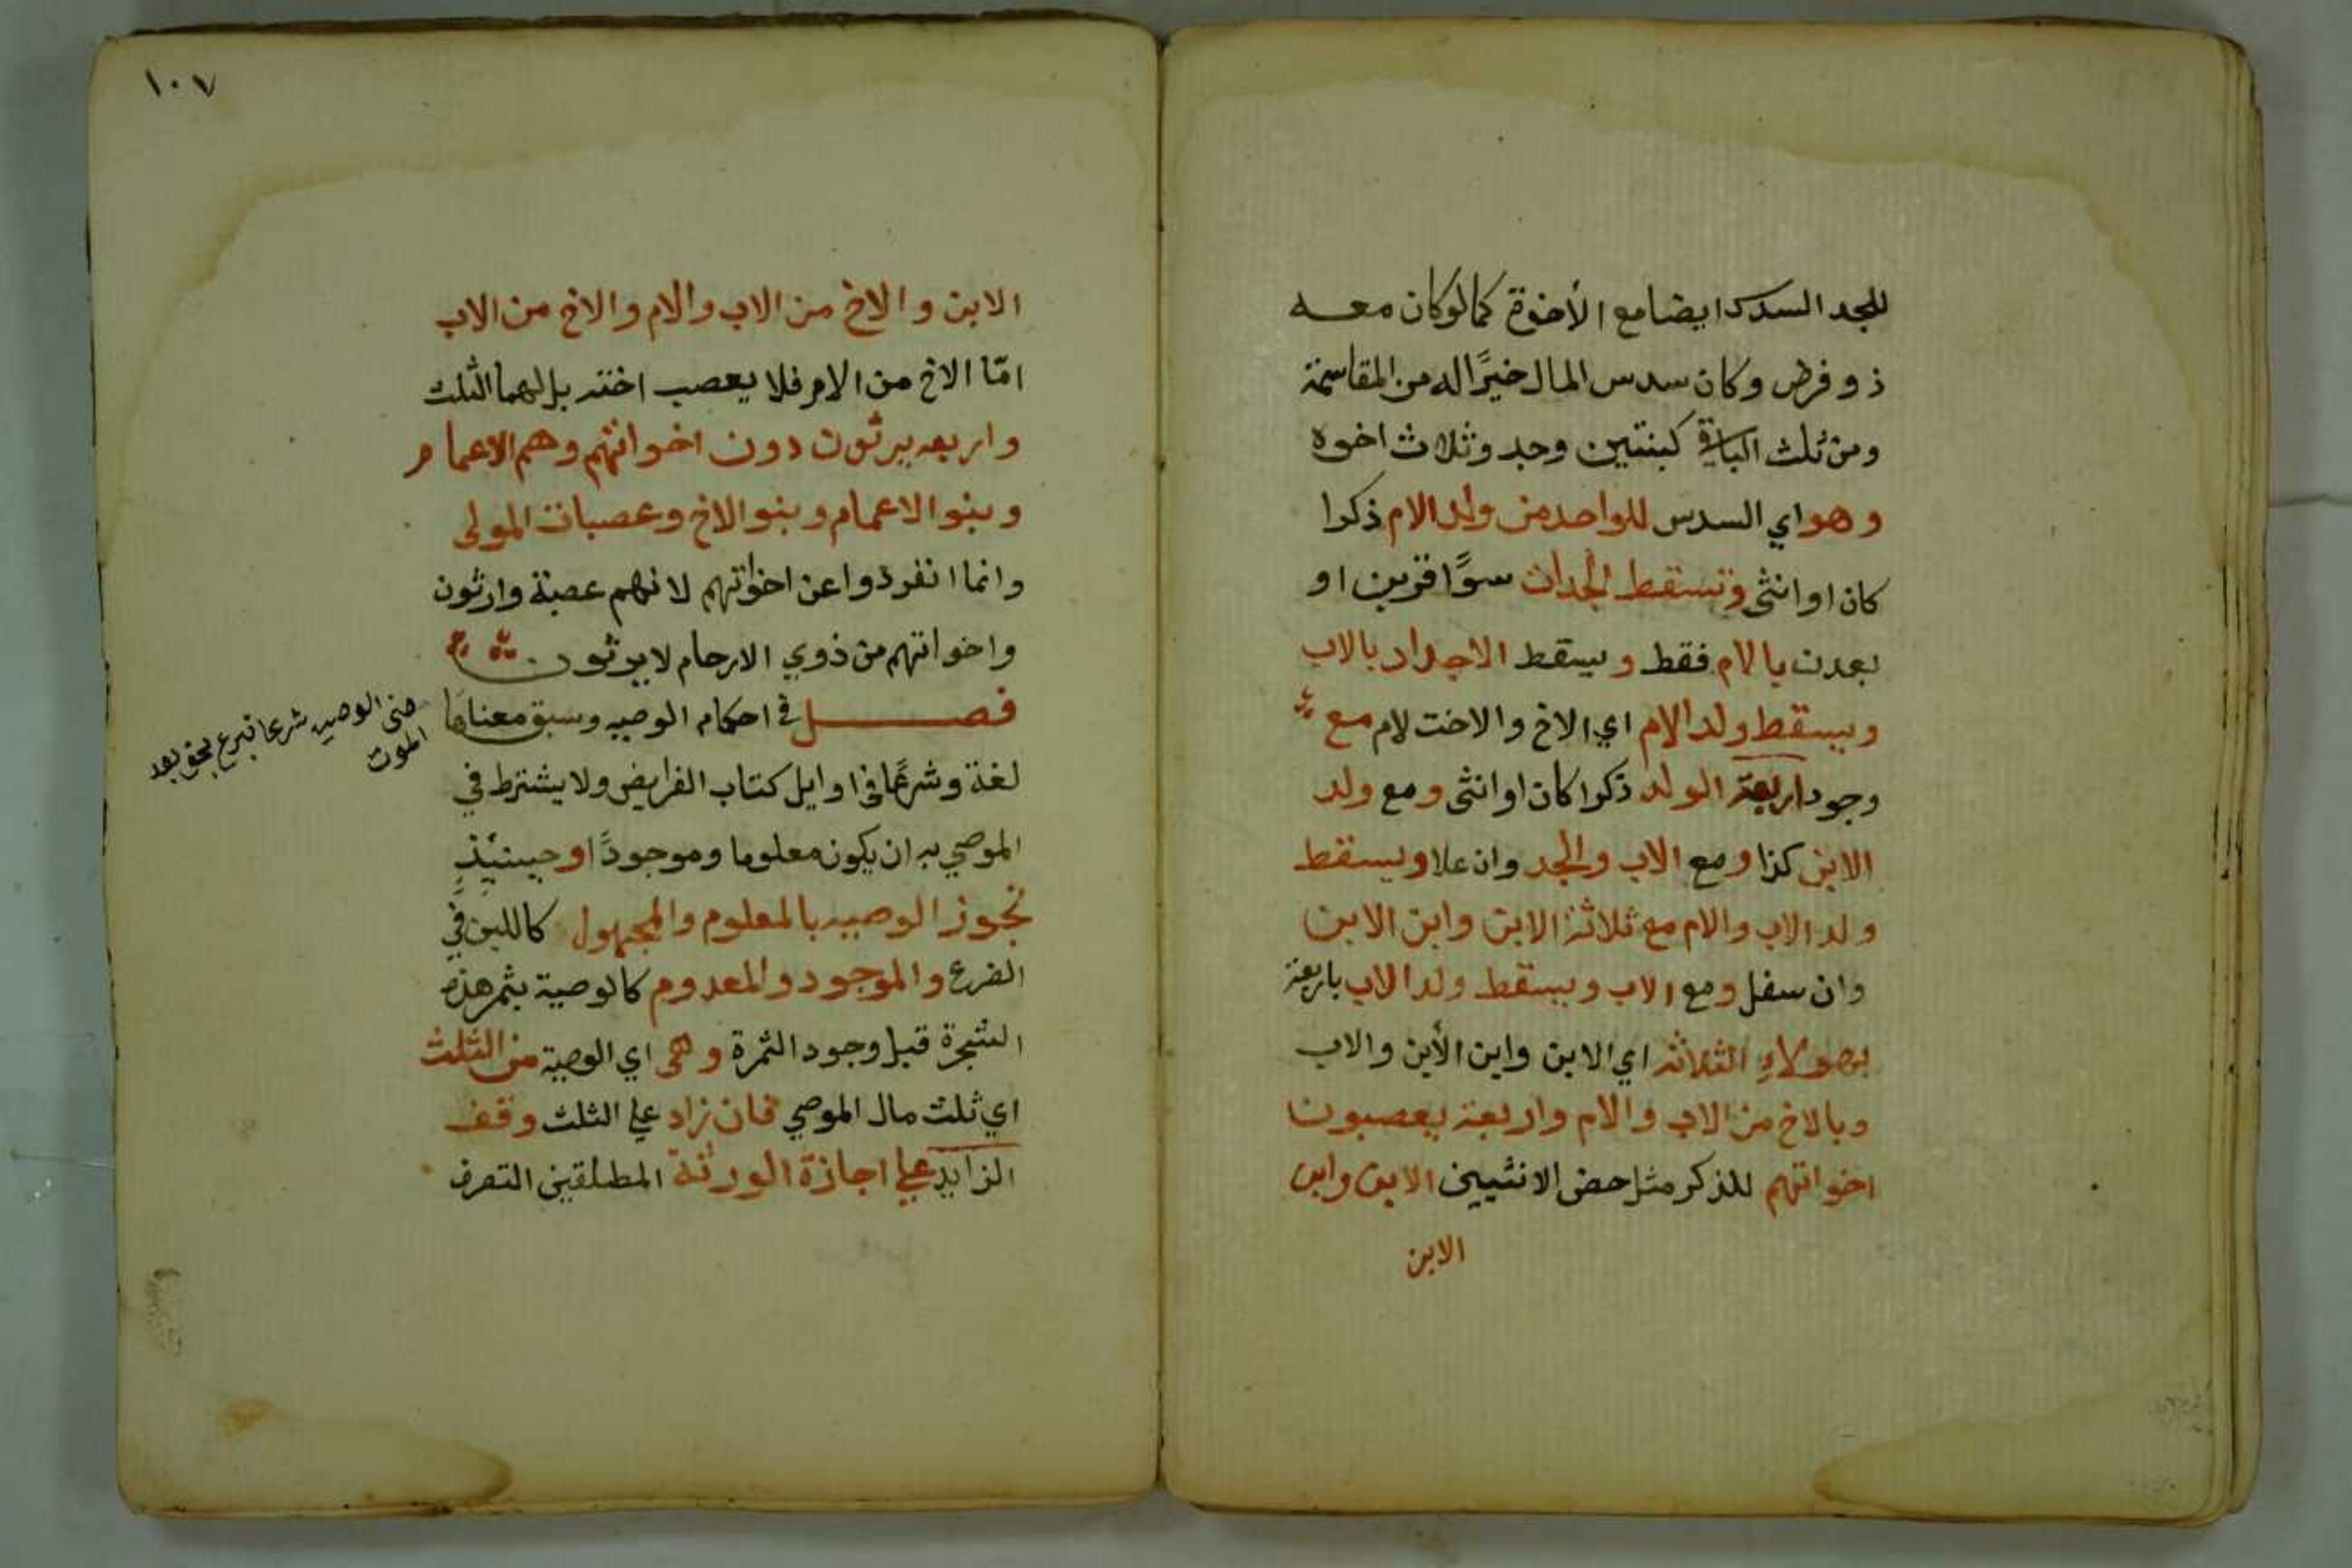 للجد السدس ايضا مع الأخوة كما لو كان معه
ذو فرض وكان سدس المال خيرًا له من المقاسمة
ومن ثلث الباقي كبنتين وجد وثلاث اخوه
وهو اي السدس للواحد من ولد الام ذكرا
كان او انثى وتسقط الجدات سوًا قربن او
بعدن بالام فقط ويسقط الاجداد بالاب
ويسقط ولد الام اي الاخ والاخت لام مع
وجود اربعة الولد ذكرا كان او انثى ومع ولد
الابن كذا ومع الاب والجد وان علا ويسقط
ولد الاب والام مع ثلاثة الابن وابن الابن
وان سفل ومع الاب ويسقط ولد الاب باربعة
بهولاءِ الثلاثه اي الابن وابن الأبن والاب
وبالاخ من الاب والام واربعة يعصبون
اخواتهم للذكر مثل حض الانثيين الابن وابن
الابن
١٠٧
الابن والاخ من الاب والام والاخ من الاب
امّا الاخ من الام فلا يعصب اخته بل لهما الثلث
واربعه يرثون دون اخواتهم وهم الاعمام
وبنو الاعمام وبنو الاخ وعصبات المولى
وانما انفردوا عن اخواتهم لانهم عصبة وارثون
واخواتهم من ذوي الارحام لا يرثون
فصل في احكام الوصيه وسبق معناها
لغة وشرعًا في اوايل كتاب الفرايض ولا يشترط في
الموصي به ان يكون معلوما وموجودًا وحينيئذٍ
تجوز الوصيه بالمعلوم والمجهول كاللبن في
الضرع والموجود والمعدوم كالوصية بثمر هذه
الشجرة قبل وجود الثمرة وهي اي الوصية من الثلث
اي ثلث مال الموصي فان زاد علي الثلث وقف
الزايد علي اجازة الورثة المطلقين التصرف
الوصيه شرعا تبرع بحق بعد
الموت